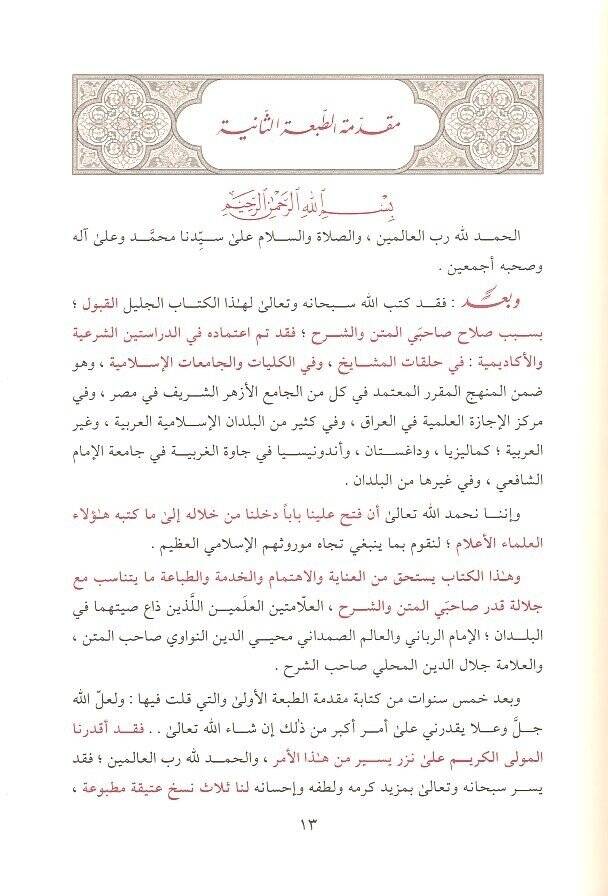 مقدّمة الطّبعة الثّانية
بِسْمِ اللهِ الرَّحْمٰنِ الرَّحِيْمِ
الحمـد لله رب العالمين ، والصلاة والسـلام علىٰ سـيِّدنا محمَّـد وعلىٰ آله
وصحبه أجمعين .
وبعـدُ : فقـد كتب الله سـبحانه وتعالىٰ لهـٰذا الكتـاب الجليل القبول ؛
بسـبب صلاح صاحبَي المتن والشـرح ؛ فقـد تم اعتماده في الدراستين الشرعية
والأكاديمية : في حلقات المشـايخ ، وفي الكليات والجامعات الإسـلامية ، وهو
ضمن المنهج المقرر المعتمد في كل من الجامع الأزهر الشـريف في مصر ، وفي
مركز الإجازة العلمية في العراق ، وفي كثير من البلدان الإسلامية العربية ، وغير
العربية ؛ كماليزيا ، وداغستان ، وأندونيسيا في جاوة الغربية في جامعة الإمام
الشافعي ، وفي غيرها من البلدان .
وإننـا نحمد الله تعالىٰ أن فتح علينا باباً دخلنا من خلاله إلىٰ ما كتبه هـٰؤلاء
العلماء الأعلام ؛ لنقوم بما ينبغي تجاه موروثهم الإسلامي العظيم .
وهـٰذا الكتاب يستحق من العناية والاهتمام والخدمة والطباعة ما يتناسب مع
جلالة قدر صاحبَي المتن والشـرح ، العلامتين العلَميـن اللَّذين ذاع صيتهما في
البلـدان ؛ الإمام الرباني والعالم الصمداني محيـي الدين النواوي صاحب المتن ،
والعلامة جلال الدين المحلي صاحب الشرح .
وبعد خمس سنوات من كتابة مقدمة الطبعة الأولىٰ والتي قلت فيها : ولعلّ الله
جلَّ وعـلا يقدرني علىٰ أمر أكبر من ذٰلك إن شـاء الله تعالىٰ .. فقـد أقدرنا
المولى الكريـم علىٰ نزر يسـير من هـٰذا الأمر ، والحمـد لله رب العالمين ؛ فقد
يسـر سـبحانه وتعالىٰ بمزيد كرمه ولطفه وإحسانه لنا ثلاث نسخ عتيقة مطبوعة ،
١٣